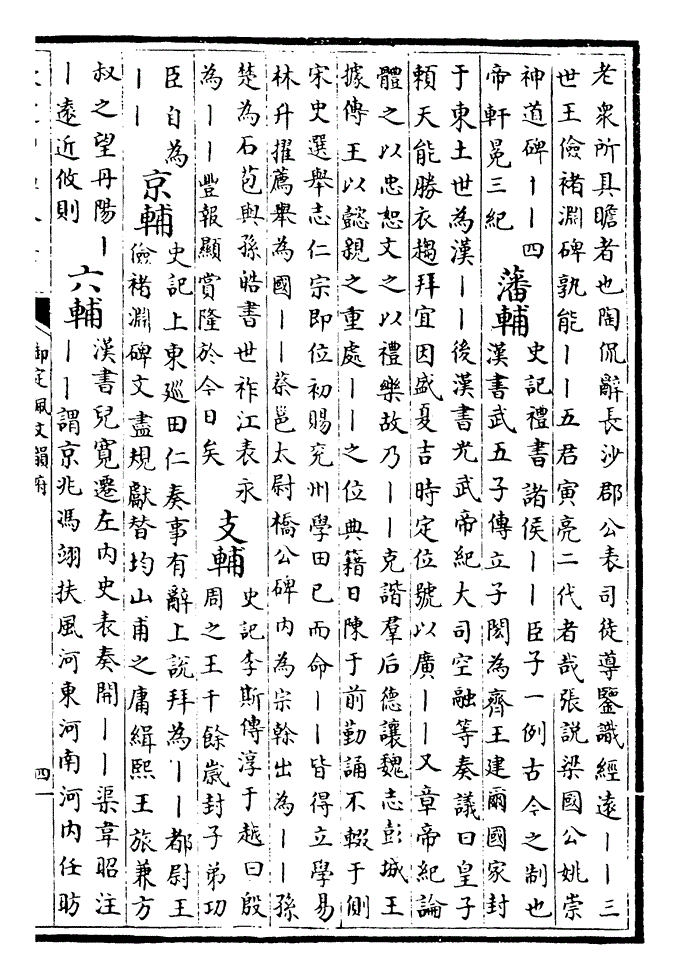 老衆所具瞻者也陶侃辭長沙郡公表司徒導鑒識經遠丨丨三
世王儉褚淵碑孰能丨丨五君寅亮二代者哉張説梁國公姚崇
神道碑丨丨四
帝軒冕三紀
藩輔
史記禮書諸侯丨丨臣子一例古今之制也
漢書武五子傳立子閎為齊王建爾國家封
于東土世為漢丨丨後漢書光武帝紀大司空融等奏議曰皇子
賴天能勝衣趨拜宜因盛夏吉時定位號以廣丨丨又章帝紀論
體之以忠恕文之以禮樂故乃丨丨克諧羣后德讓魏志彭城王
據傳王以懿親之重處丨丨之位典籍日陳于前勤誦不輟于側
宋史選舉志仁宗即位初賜兖州學田已而命丨丨皆得立學易
林升擢薦舉為國丨丨蔡邕太尉橋公碑内為宗幹出為丨丨孫
楚為石苞與孫皓書世祚江表永
為丨丨豐報顯賞隆於今日矣
支輔
史記李斯傳淳于越曰殷
周之王千餘歲封子弟功
臣自為
丨丨
京輔
史記上東廵田仁奏事有辭上説拜為丨丨都尉王
儉褚淵碑文盡規獻替均山甫之庸緝熙王旅兼方
叔之望丹陽丨
丨遠近攸則
六輔
漢書兒寛遷左内史表奏開丨丨渠韋昭注
丨丨謂京兆馮翊扶風河東河南河内任昉
御定佩文韻府
四